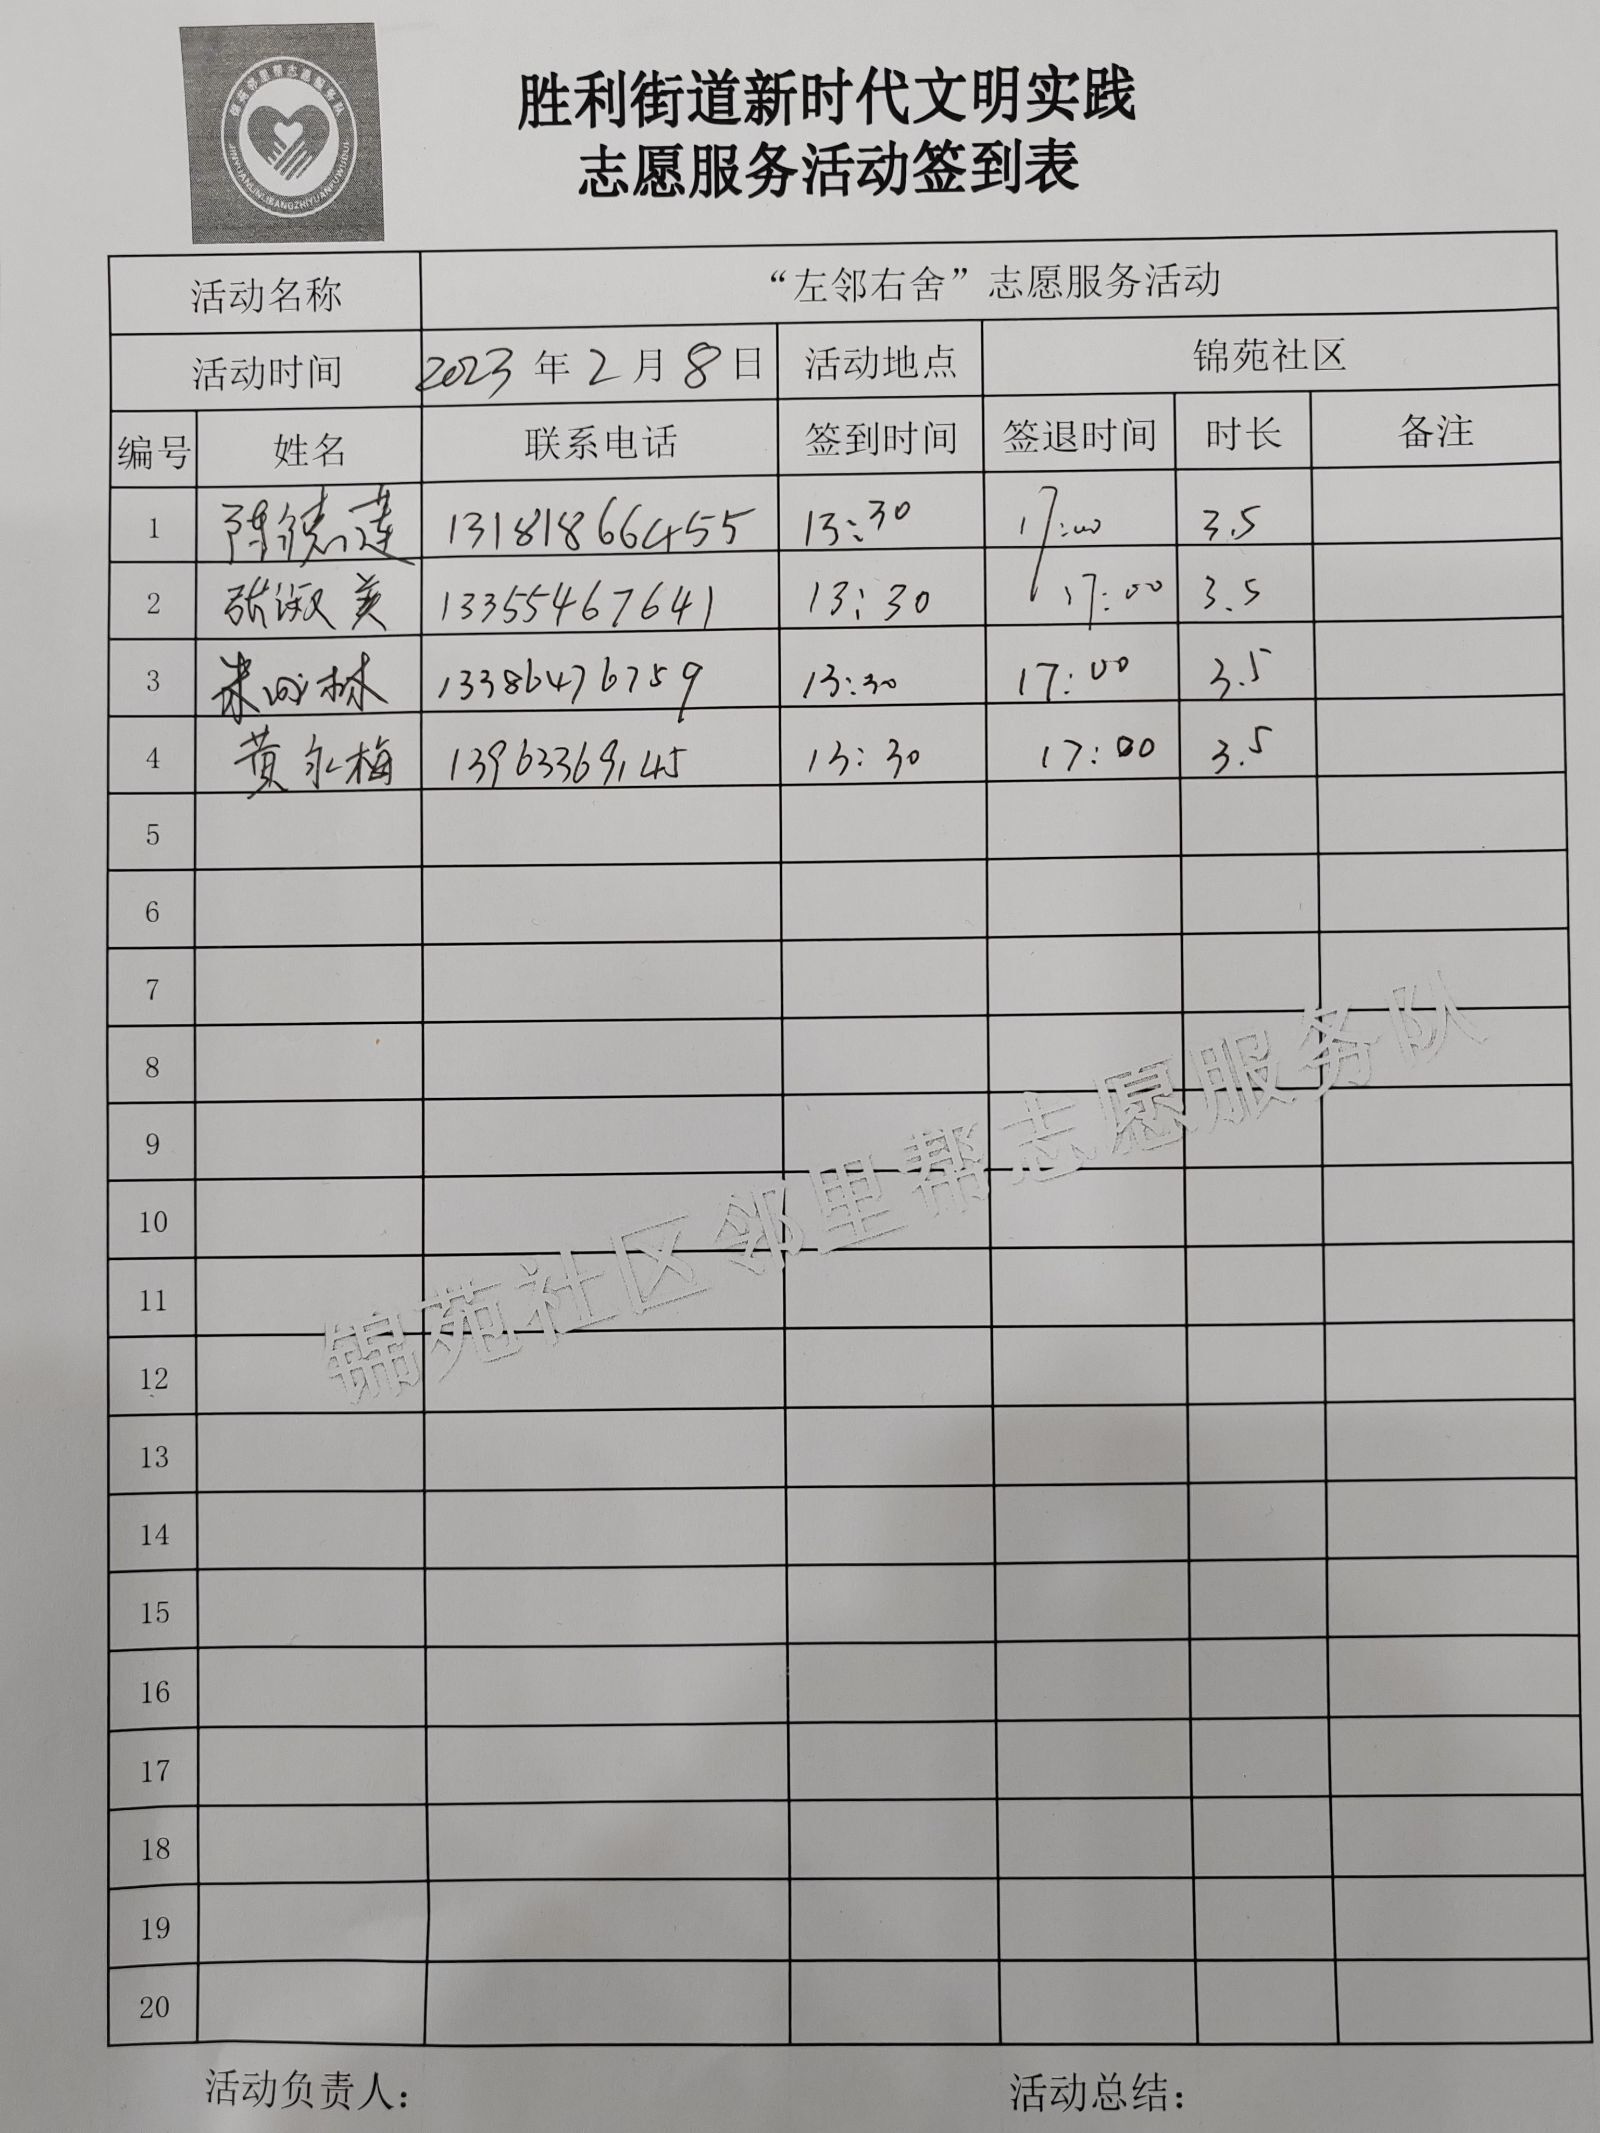 胜利街道新时代文明实践
志愿服务活动签到表
活动名称 “左邻右舍”志愿服务活动
活动时间 2023年2月8日 活动地点 锦苑社区
编号 姓名 联系电话 签到时间 签退时间 时长 备注
1 陈德莲 13181866455 13:30 17:00 3.5
2 张淑美 13355467641 13:30 17:00 3.5
3 林 13386476759 13:30 17:00 3.5
4 黄永梅 13963369145 13:30 17:00 3.5
5
6
7
8
9
10
11
12
13
14
15
16
17
18
19
20
锦苑社区邻里帮志愿服务队
活动负责人： 活动总结：